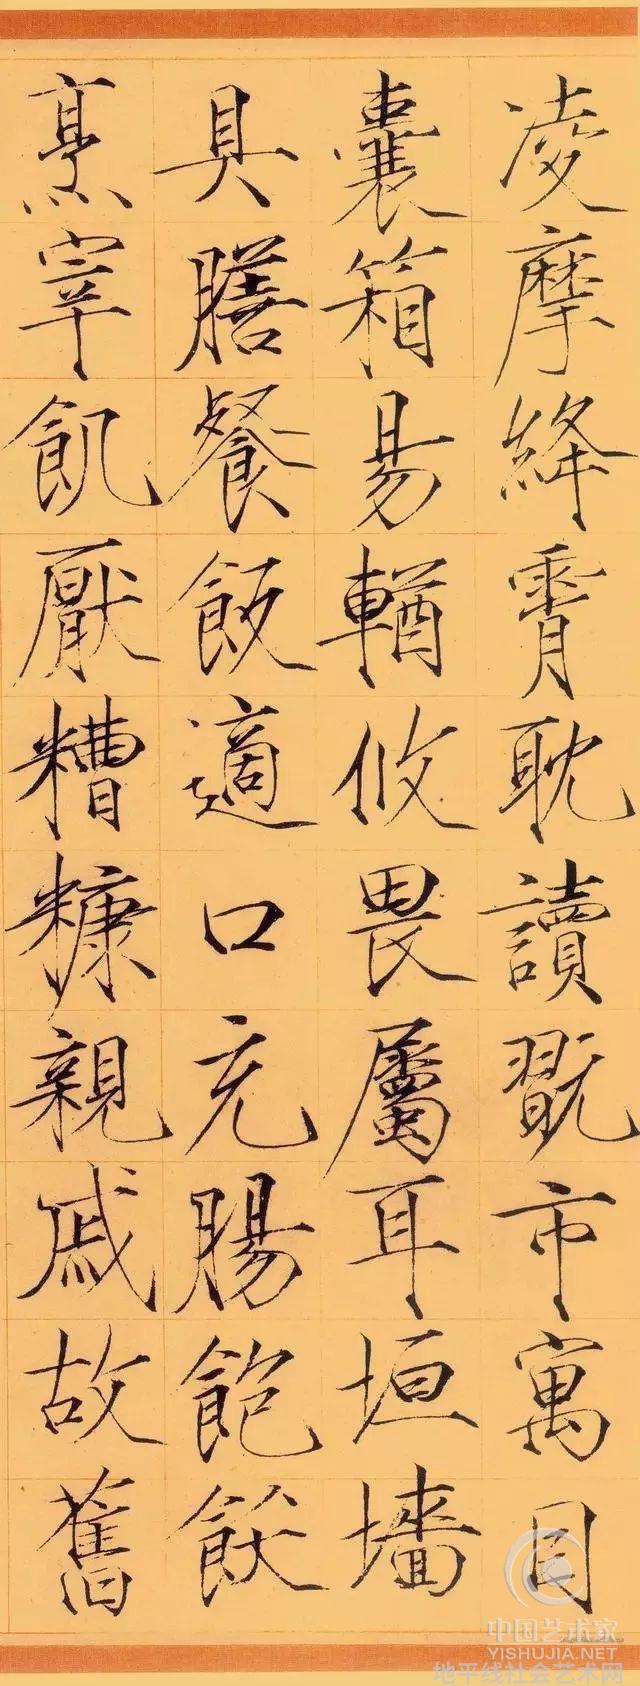 凌摩絳霄耽讀翫市寓目
囊箱易輶攸畏屬耳垣墻
具膳餐飯適口充腸飽飫
烹宰飢厭糟糠親戚故舊
中国艺术家
YISHUJIA.NET
地平线社会艺术网